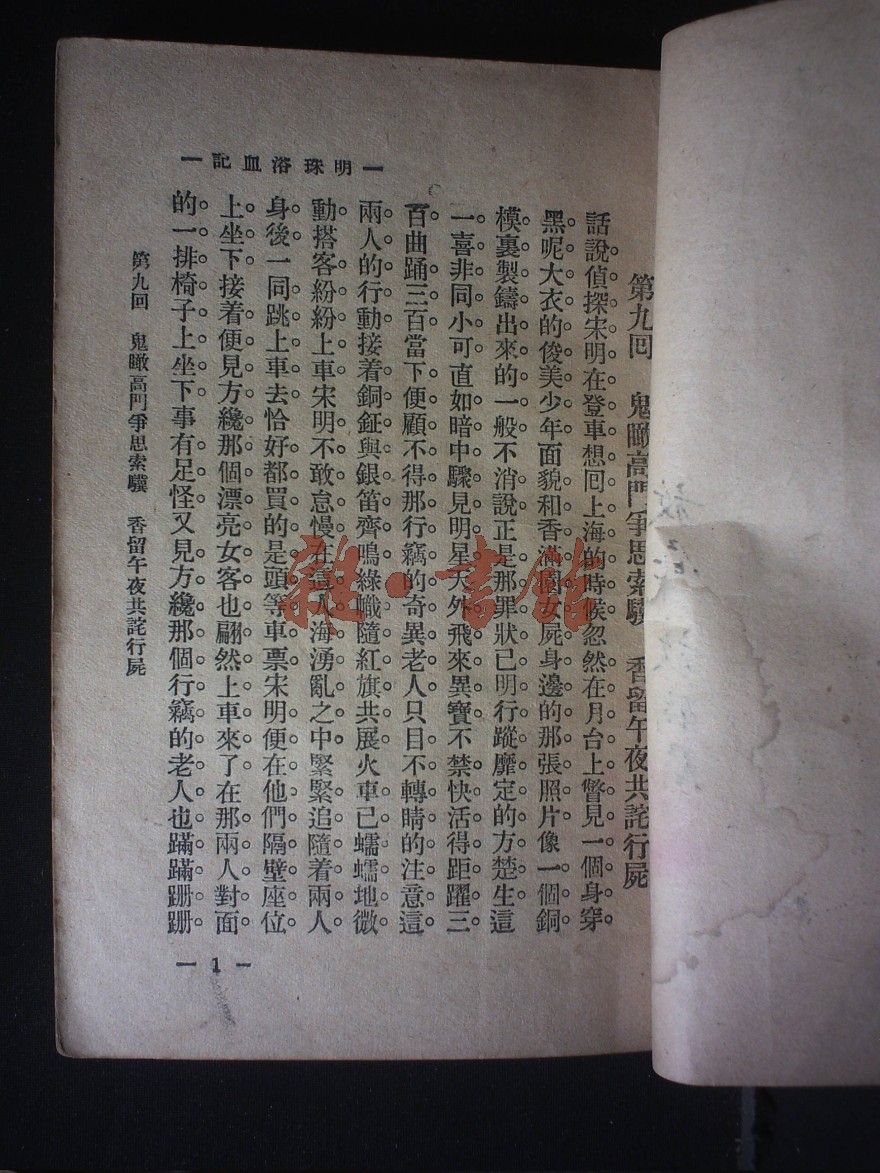 一記血浴珠明一
第九回　鬼瞰高門爭思索驥　香留午夜共詫行屍
話說偵探宋明在登車想回上海的時候忽然在月台上瞥見一個身穿
黑呢大衣的俊美少年面貌和香滿園女屍身邊的那張照片像一個銅
模裏製鑄出來的一般不消說正是那罪狀已明行蹤靡定的方楚生這
一喜非同小可直如暗中驟見明星天外飛來異寶不禁快活得距躍三
百曲踊三百當下便顧不得那行竊的奇異老人只目不轉睛的注意這
兩人的行動接着銅鉦與銀笛齊鳴綠幟隨紅旗共展火車已蠕蠕地微
動搭客紛紛上車宋明不敢怠慢在這人海湧亂之中緊緊追隨着兩人
身後一同跳上車去恰好都買的是頭等車票宋明便在他們隔壁座位
上坐下接着便見方纔那個漂亮女客也翩然上車來了在那兩人對面
的一排椅子上坐下事有足怪又見方纔那個行竊的老人也蹣蹣跚跚
第九回　鬼瞰高門爭思索驥　香留午夜共詫行屍
— 1 —
雜·書館